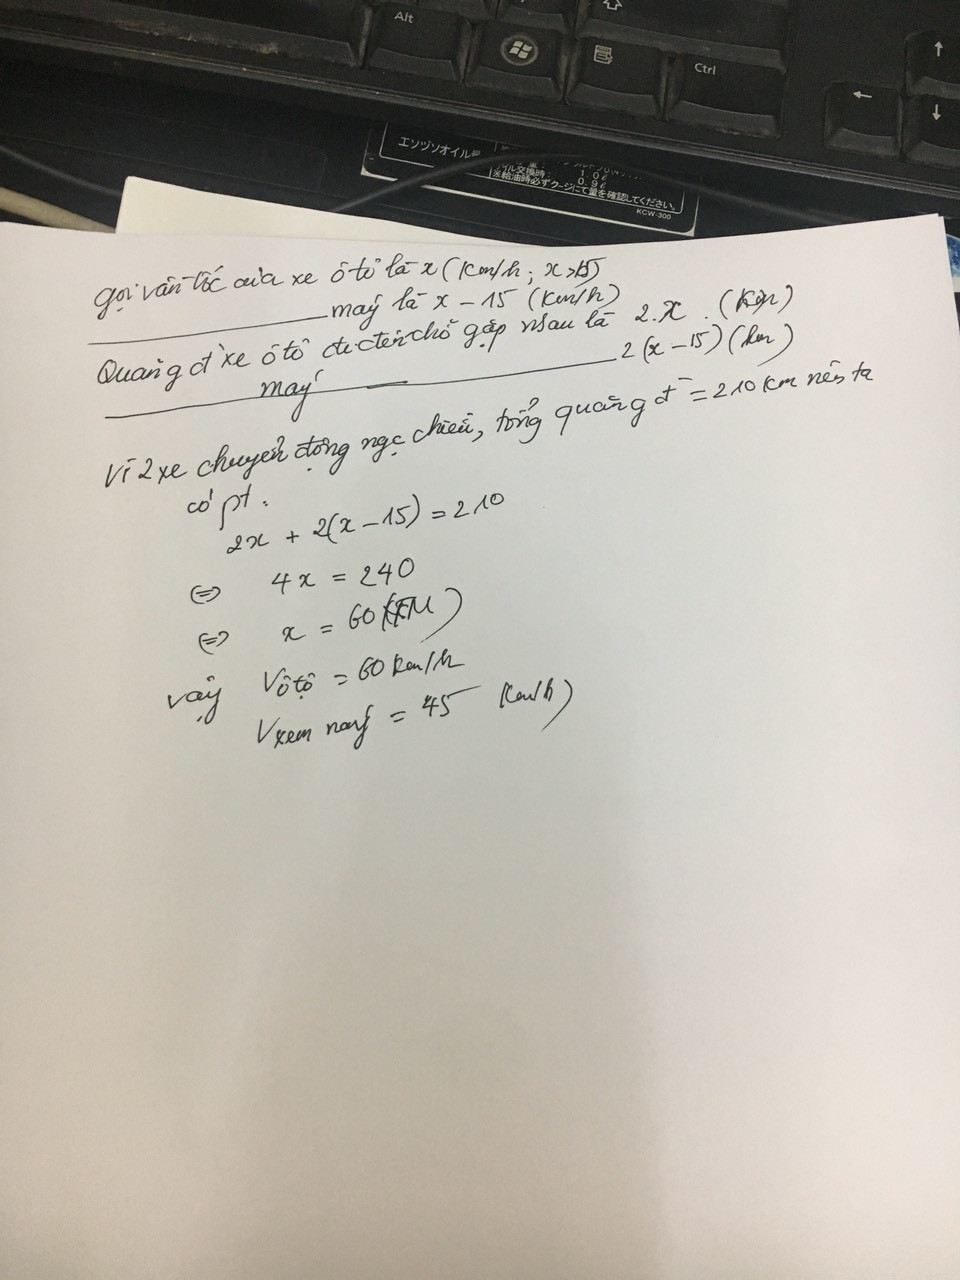 Alt
Ctrl
エンヅソオイル
オイル交換時: 1.0ℓ
0.9ℓ
※給油時必ずゲージにて量を確認してください。
KCW-300
gọi vân tốc của xe ô tô là x (km/h; x>15)
máy là x - 15 (km/h)
Quãng đ` xe ô tô đi đến chỗ gặp nhau là 2.x. (km)
máy 2(x - 15) (km)
Vì 2 xe chuyển động ngc chiều, tổng quãng đ` = 210 km nên ta
có pt:
2x + 2(x - 15) = 210
⇔ 4x = 240
⇔ x = 60 (TM)
Vậy Vô tô = 60 km/h
Vxem máy = 45 km/h)